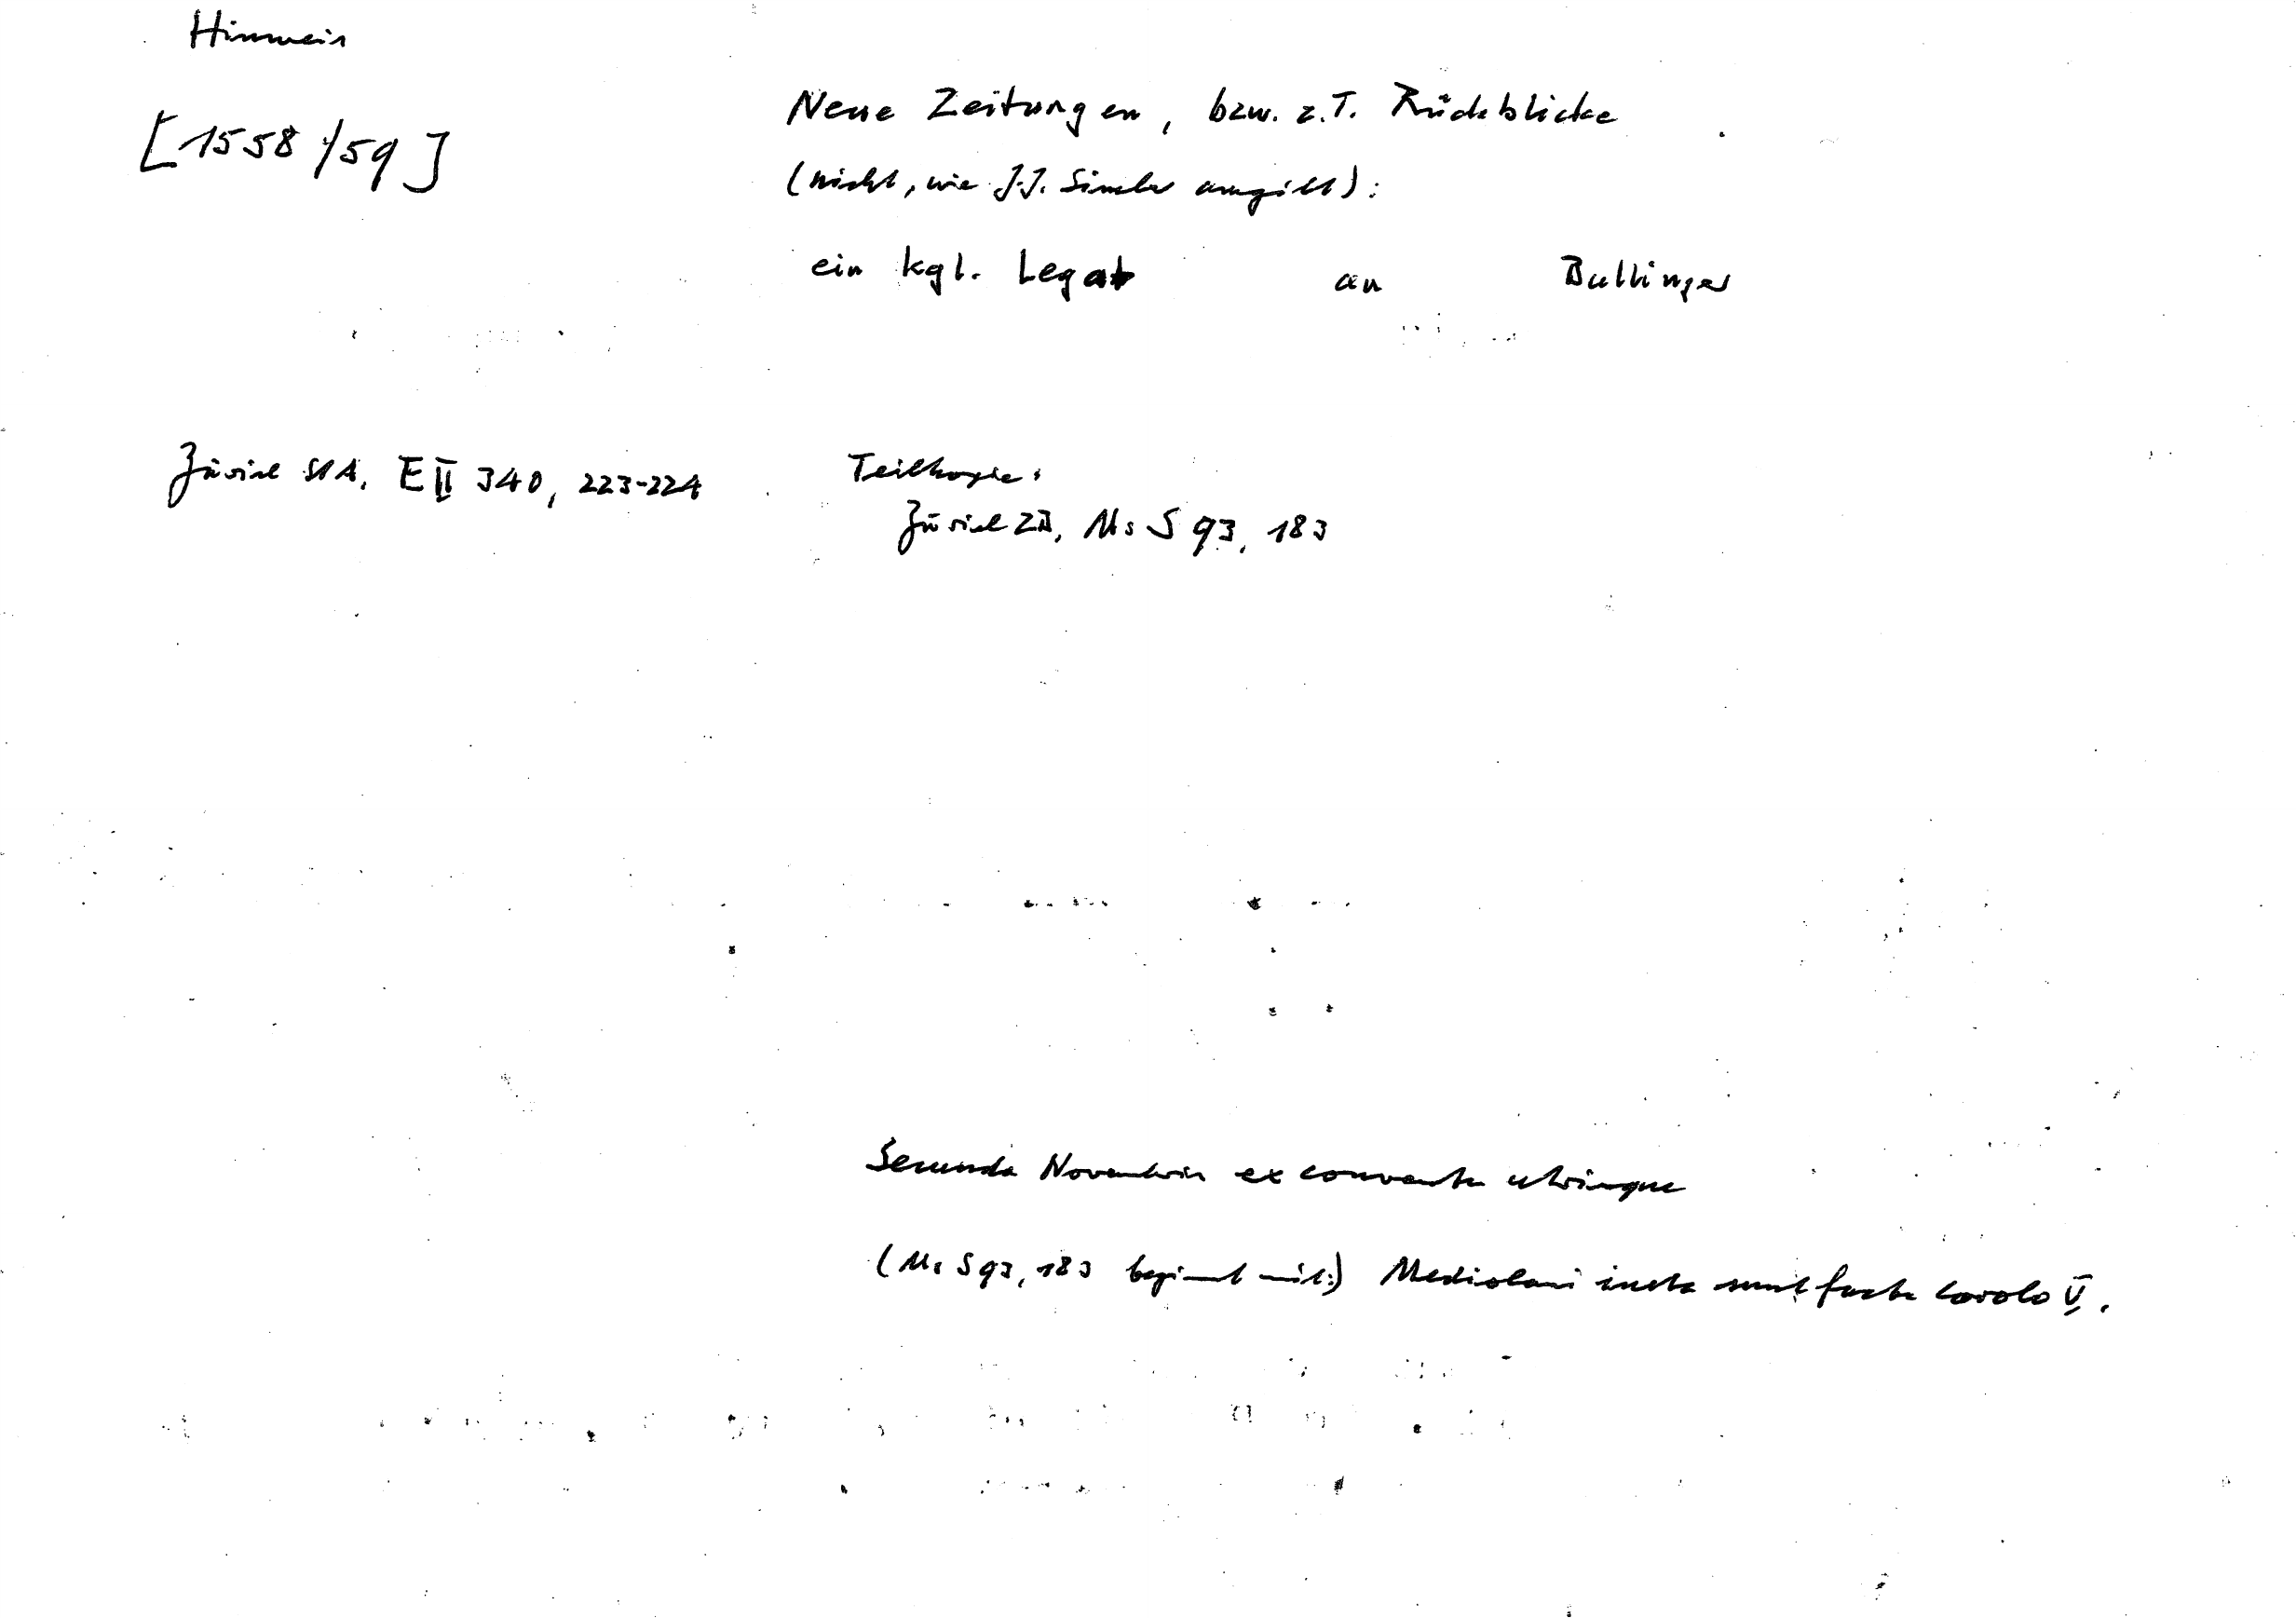 Hinweis
[1558/59]
Neue Zeitungen, bzw. z.T. Rückblicke
(nicht, wie J.J. Simler angibt):
ein kgl. Legat an Bullinger
Zürich StA, E II 340, 223-224
Teilkopie:
Zürich ZB, Ms S 93, 183
Secunda Novembris ex conventu utrinque
(Ms S 93, 183 beginnt mit:) Mediolani iusta sunt facta Carolo V.